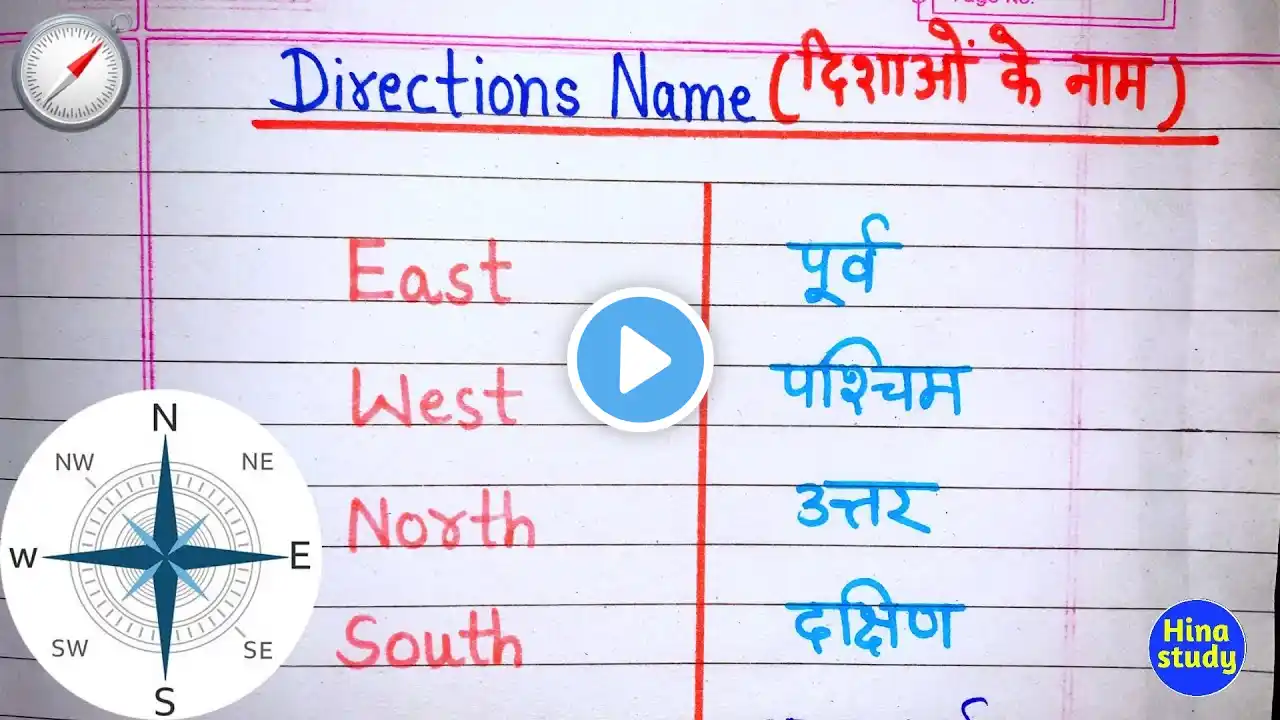 Page No.
Directions Name (दिशाओं के नाम)
East पूर्व
West पश्चिम
North उत्तर
South दक्षिण
N
NW NE
W E
SW SE
S
Hina
study